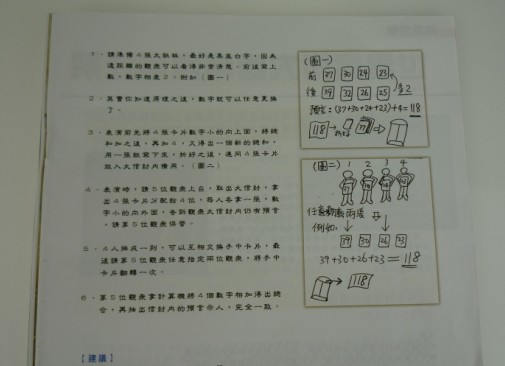 1．請準備4張大紙板，最好是黑底白字，因為
遠距離的觀眾可以看得非常清楚。前後寫上
數，數字相差2。例如（圖一）
2．其實你知道原理之後，數字就可以任意更換
了。
3．表演前先將4張卡片數字小的向上面，將總
和加之後，再加4，又得出一個新的總和。
用一張紙寫下來，折好之後，連同4張卡片
放入大信封內備用。（圖二）
4．表演時，請5位觀眾上台，取出大信封，拿
出4張卡片分配給4位，每人各拿一張，數
字小的向外面，告訴觀眾大信封內仍有預言
，請第5位觀眾保管。
5．4人排成一列，可以互相交換手中卡片，最
後請第5位觀眾任意指定兩位觀眾，將手中
卡片翻轉一次。
6．第5位觀眾拿計算機將4個數字相加得出總
合，再抽出信封內的預言命人，完全一致。
【建議】
（圖一）
前 37 30 24 23
後 39 32 26 25
差2
預言：(37+30+24+23)+4=118
118
（圖二）
1 2 3 4
任意翻兩張
例如
39 30 26 23
39+30+26+23=118
118